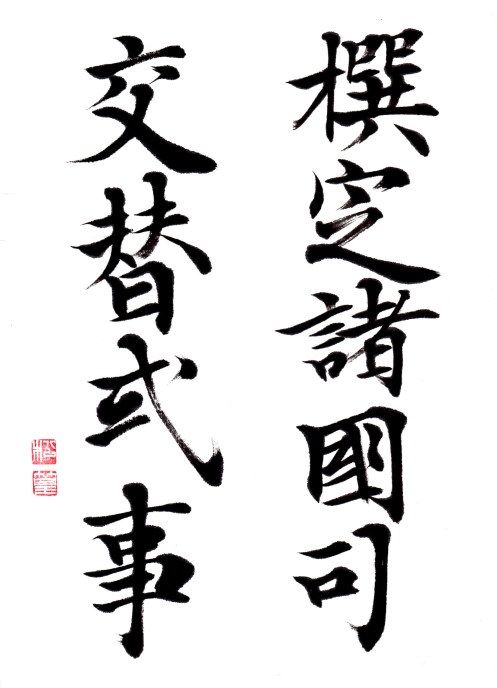 撰定諸國司
交替式事